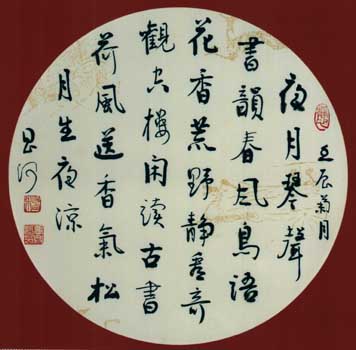 壬辰菊月
夜月琴聲
書韻春風鳥語
花香荒野靜看奇
觀空樓閑讀古書
荷風送香氣松
月生夜涼